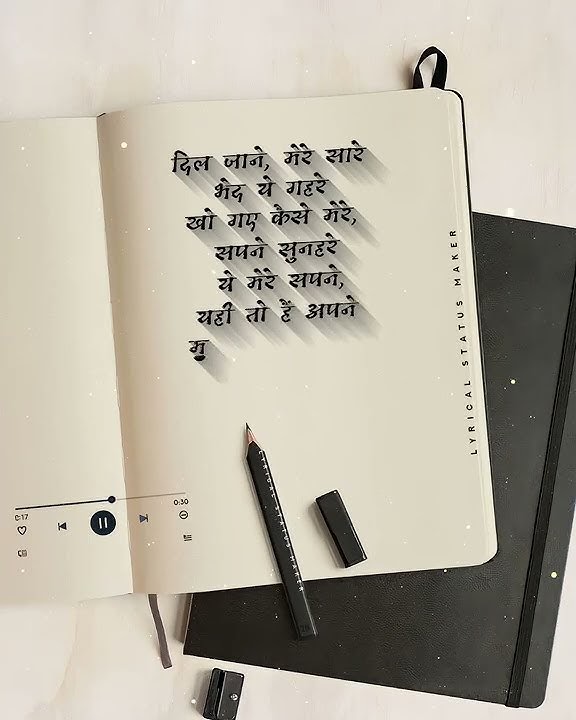 दिल जाने, मेरे सारे
भेद ये गहरे
खो गए कैसे मेरे,
सपने सुनहरे
ये मेरे सपने,
यही तो हैं अपने
मु
LYRICAL STATUS MAKER
0:17
0:30